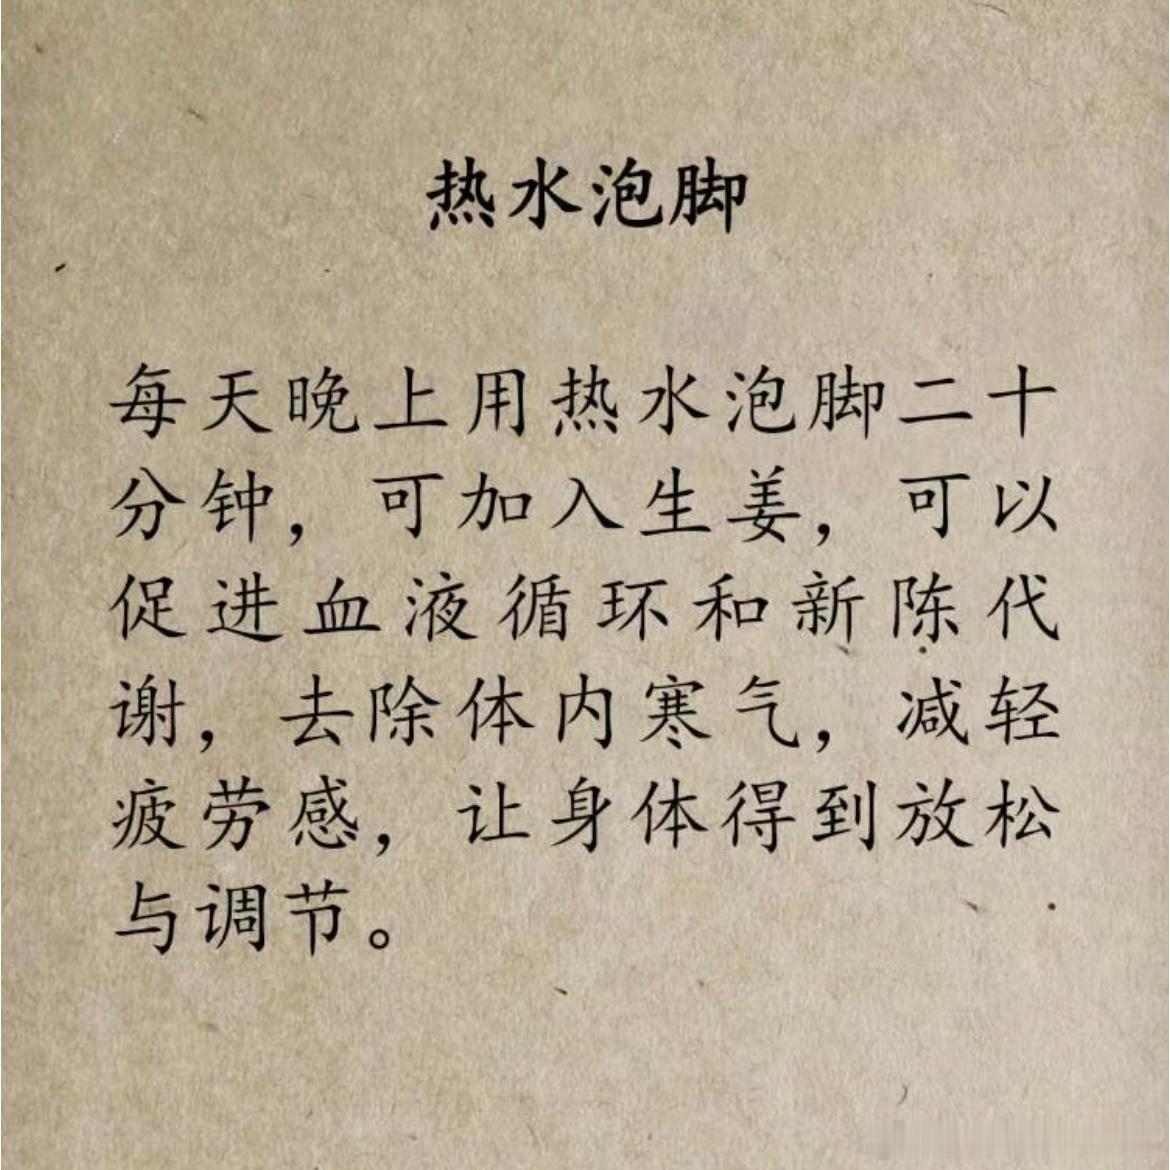 热水泡脚
每天晚上用热水泡脚二十
分钟，可加入生姜，可以
促进血液循环和新陈代
谢，去除体内寒气，减轻
疲劳感，让身体得到放松
与调节。